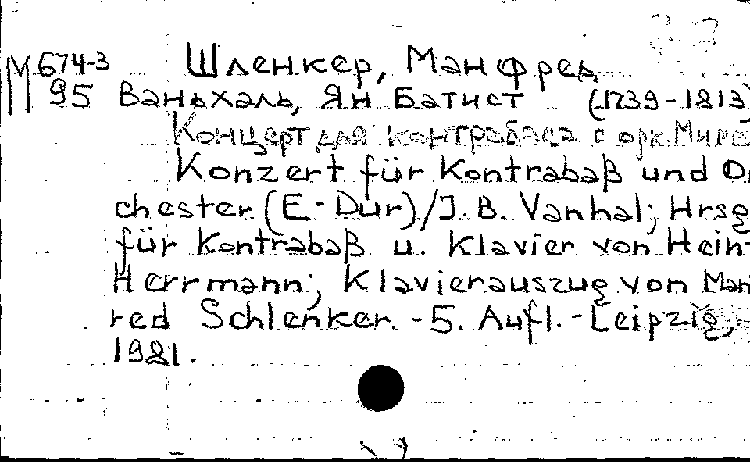 М 674-3 Шленкер, Манфред
95 Ваньхаль, Ян Батист (1739-1813)
Концерт для контрабаса с орк. Ми
Konzert für Kontrabaß und Or
chester (E-Dur)/J.B. Vanhal; Hrsg
für Kontrabaß u. Klavier von Hein-
Herrmann; Klavierauszug von Man
red Schlenker. -5. Aufl. -Leipzig,
1981.